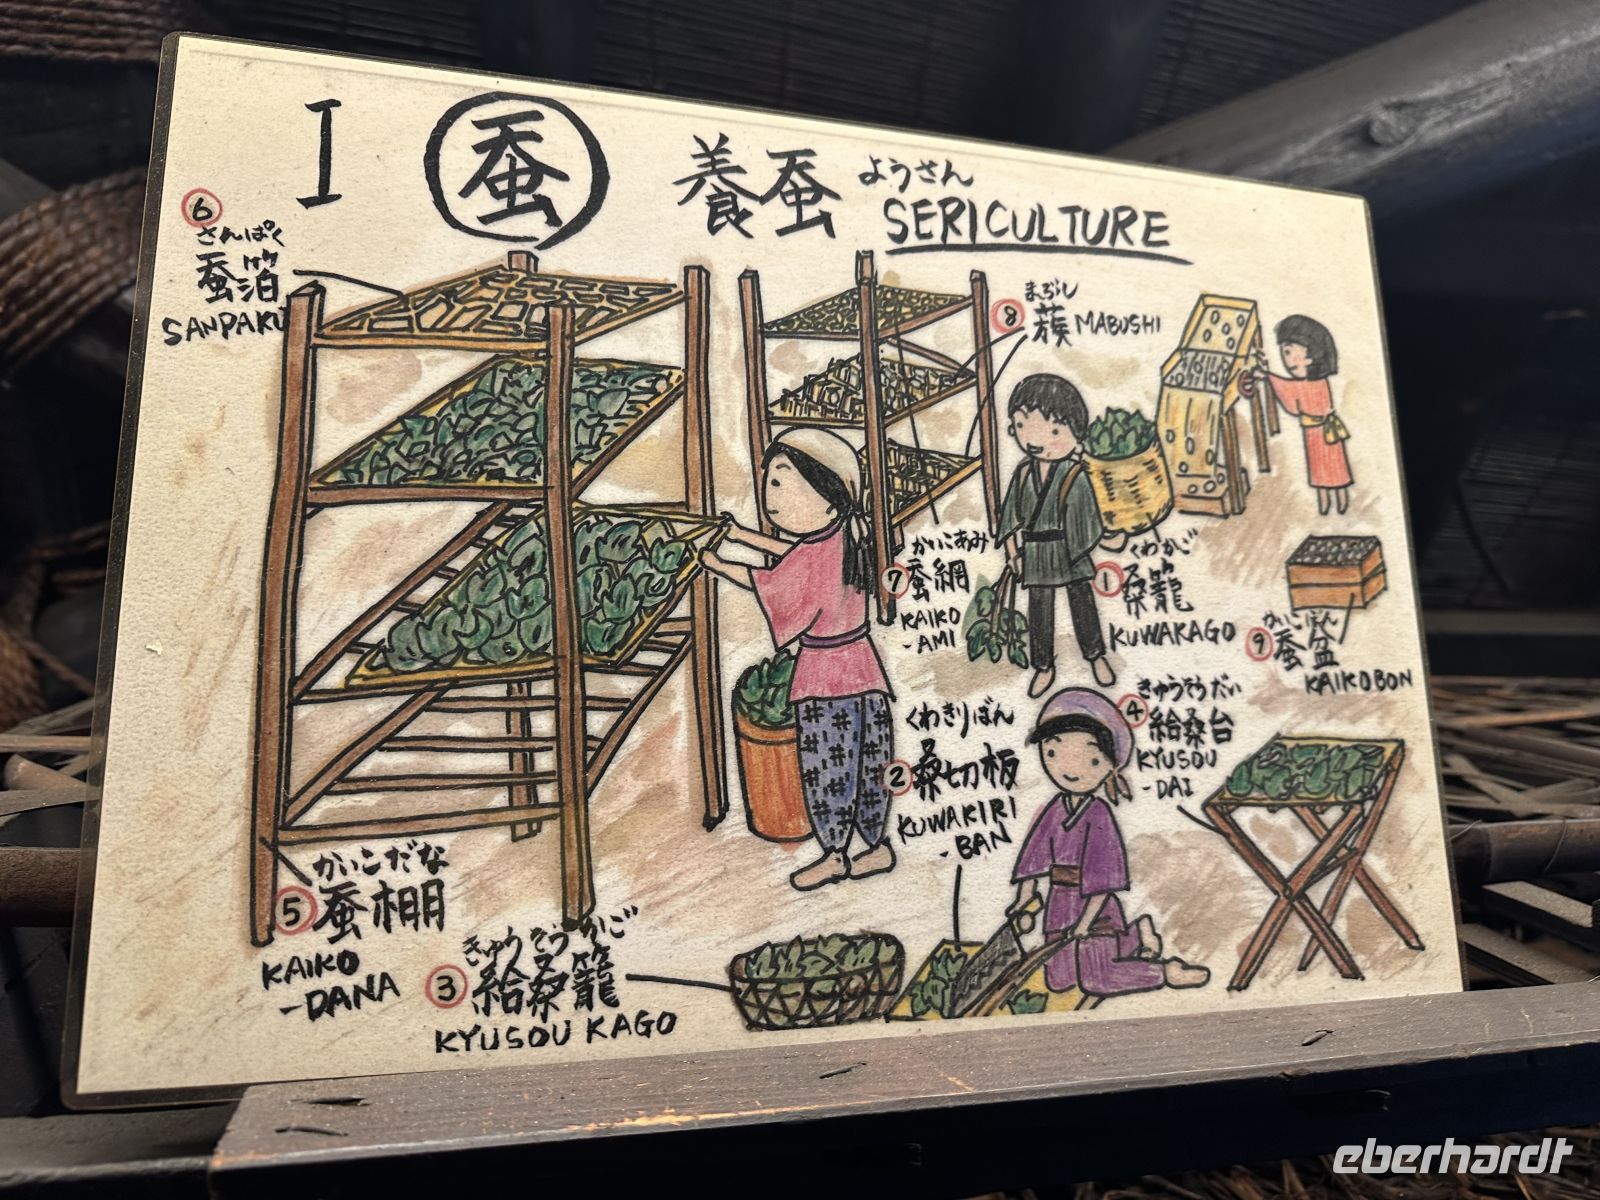 I 蚕 養蚕 ようさん
SERICULTURE
6
さんぱく
蚕箔
SANPAKU
8 まぶし
蔟 MABUSHI
7 かいこあみ
蚕網
KAIKO
-AMI
1 くわかご
桑籠
KUWAKAGO
9 かいこぼん
蚕盆
KAIKOBON
くわきりばん
2 桑切板
KUWAKIRI
-BAN
きゅうそうだい
4 給桑台
KYUSOU
-DAI
かいこだな
5 蚕棚
KAIKO
-DANA
きゅうそうかご
3 給桑籠
KYUSOU KAGO
eberhardt